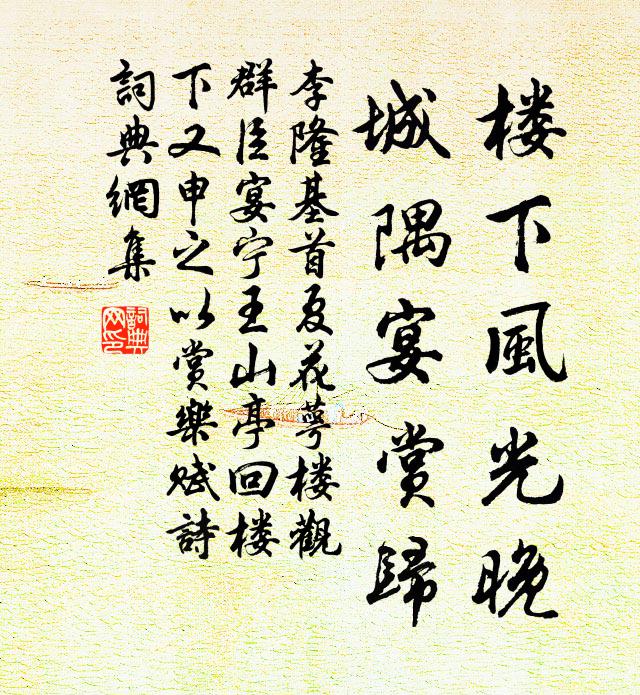 楼下風光晚
城隅宴赏歸
李隆基首夏花萼楼觀
群臣宴宁王山亭回楼
下又申之以赏樂赋詩
詞典網集
詞典网印